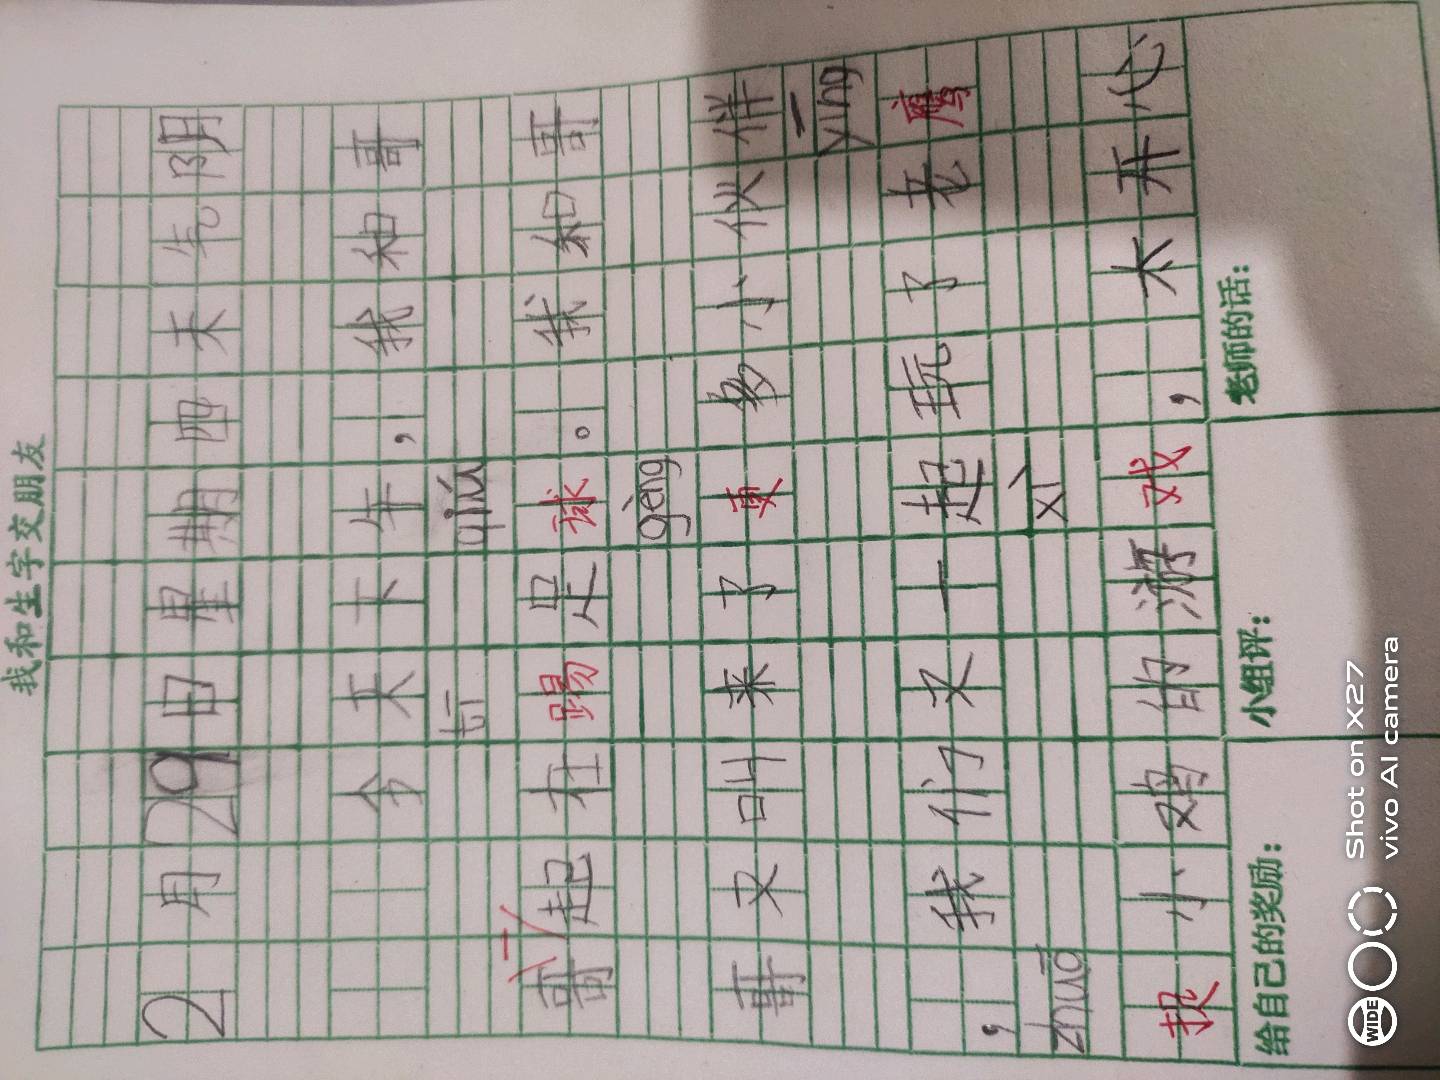 我和生字交朋友
2月29日星期四天气阴
今天下午，我和哥
tī qiú
哥一起在踢足球。我和哥
gèng
哥又叫来了更多小伙伴
yīng
，我们又一起玩了老鹰
zhuō xì
捉小鸡的游戏，太开心
给自己的奖励: 小组评: 老师的话:
WIDE
Shot on X27
vivo AI camera